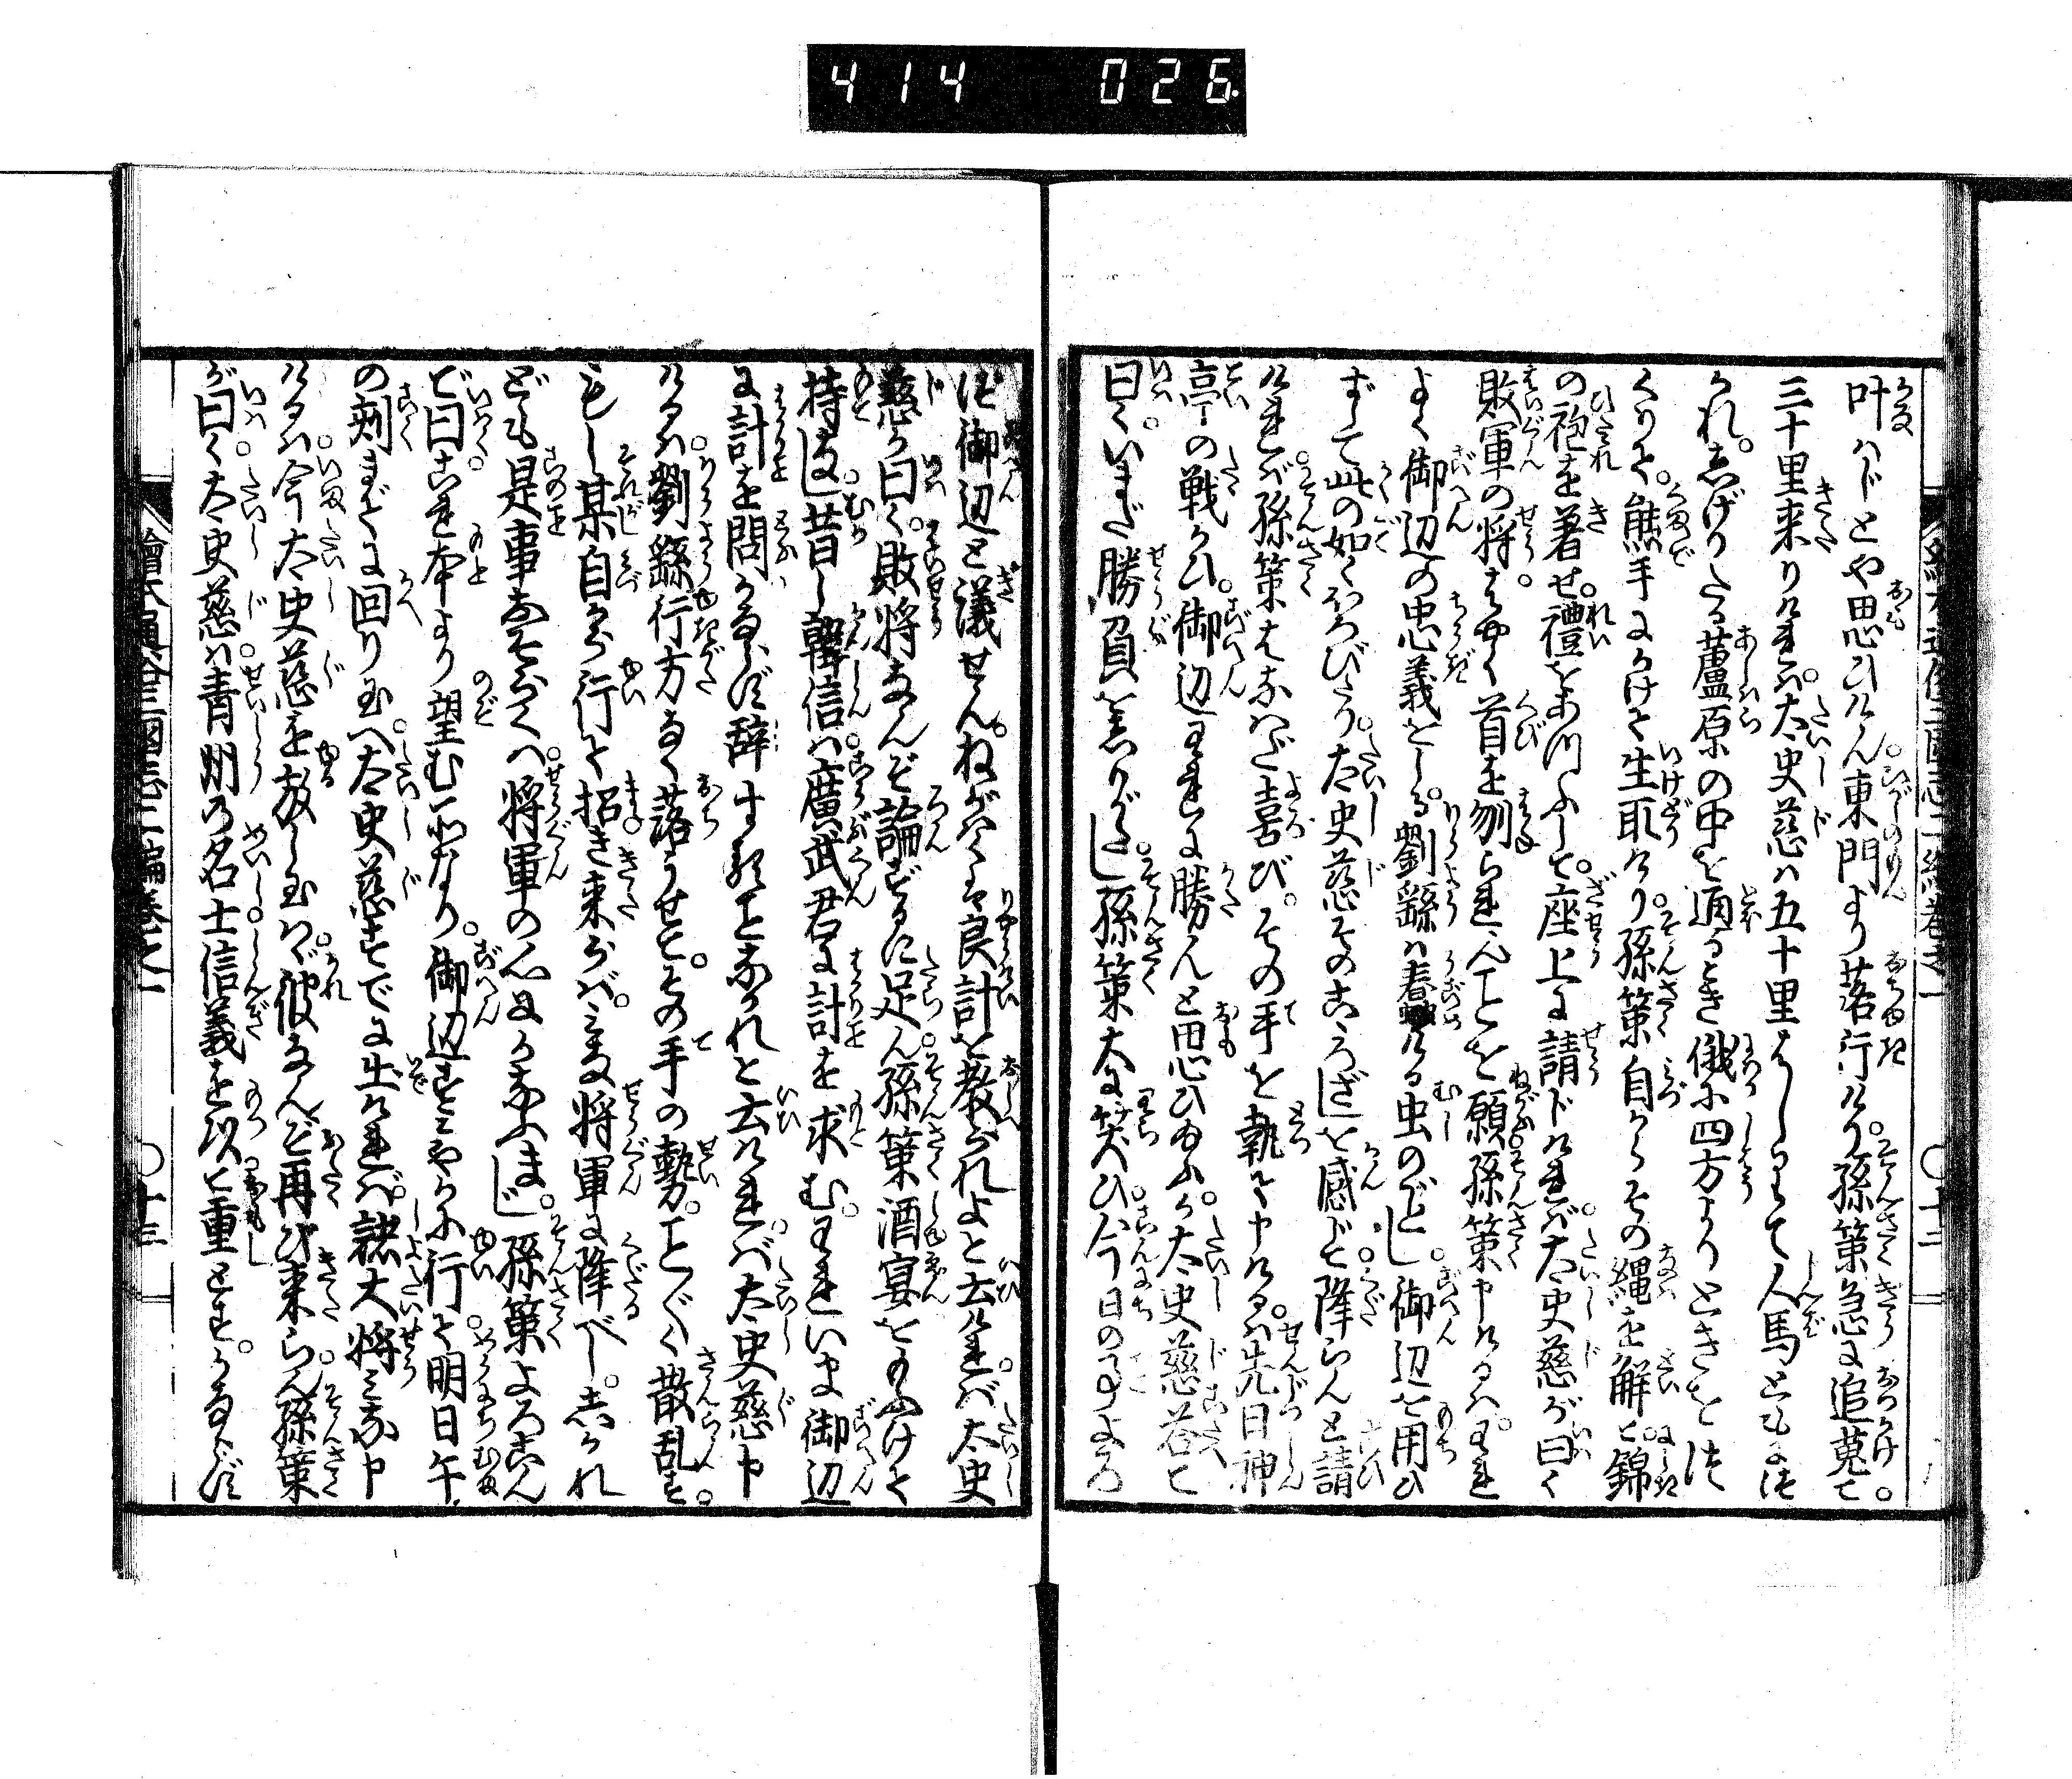 414 026
叶ハじとや思ひけん東門より落行けり。孫策急に追蒐て。
三十里来りけれバ。太史慈ハ五十里はしりて人馬ともにつ
かれ。しげりたる蘆原の中を通るとき俄に四方よりときをつ
くりて。熊手にかけて生取けり。孫策自からその縄を解て錦
の袍を着せ。禮をあつふして。座上に請じけれバ。太史慈が曰く
敗軍の将。はやく首を刎られんことを願。孫策申けるハ。われ
よく御辺の忠義をしる。劉繇ハ春蚰ける虫のごとし。御辺を用ひ
ずして此の如くほろびたり。太史慈そのこゝろざしを感じて。降らんと請
けれバ。孫策はなハだ喜び。その手を執て申けるハ。先日神
亭の戦ひ。御辺われに勝んと思ひ給ふか。太史慈答て
曰く。いまだ勝負を悉りがたし。孫策大に笑ひ。今日の事よろ
づ御辺と議せん。ねがハくハ良計を教られよと云けれバ。太史
慈が曰く。敗将なんぞ論ずるに足ん。孫策酒宴をもふけて
持なし。昔し韓信ハ。廣武君に計を求む。われいま御辺
に計を問。かならず辞することなかれと云けれバ。太史慈申
けるハ。劉繇行方なく落うせて。その手の勢。こと〴〵く散乱す。
もし某自から行て招き来らバ。みな将軍に降べし。しかれ
ども是事おそらくハ。将軍の心にかなふまじ。孫策よろこん
で曰。これ本より望む所なり。御辺すミやかに行て。明日午
の刻までに回り玉へ。太史慈すでに出けれバ。諸大将ミな申
けるハ。今太史慈を放し玉ハヾ。彼なんぞ再び来らん。孫策
が曰く。太史慈ハ。青州の名士。信義を以て重とす。かならず
繪本通俗三國志二編巻之一
〇十三